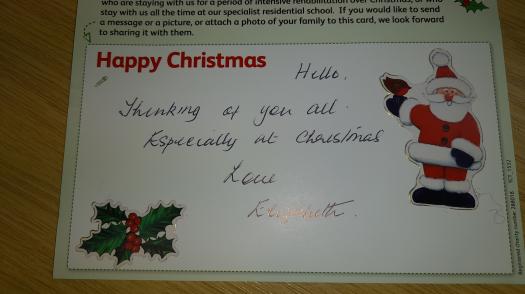 who are staying with us for a period of intensive rehabilitation over Christmas, or who
stay with us all the time at our specialist residential school. If you would like to send
a message or a picture, or attach a photo of your family to this card, we look forward
to sharing it with them.
Happy Christmas
Hello,
Thinking of you all.
Especially at Christmas
Love
Elizabeth.
Registered charity number 288018